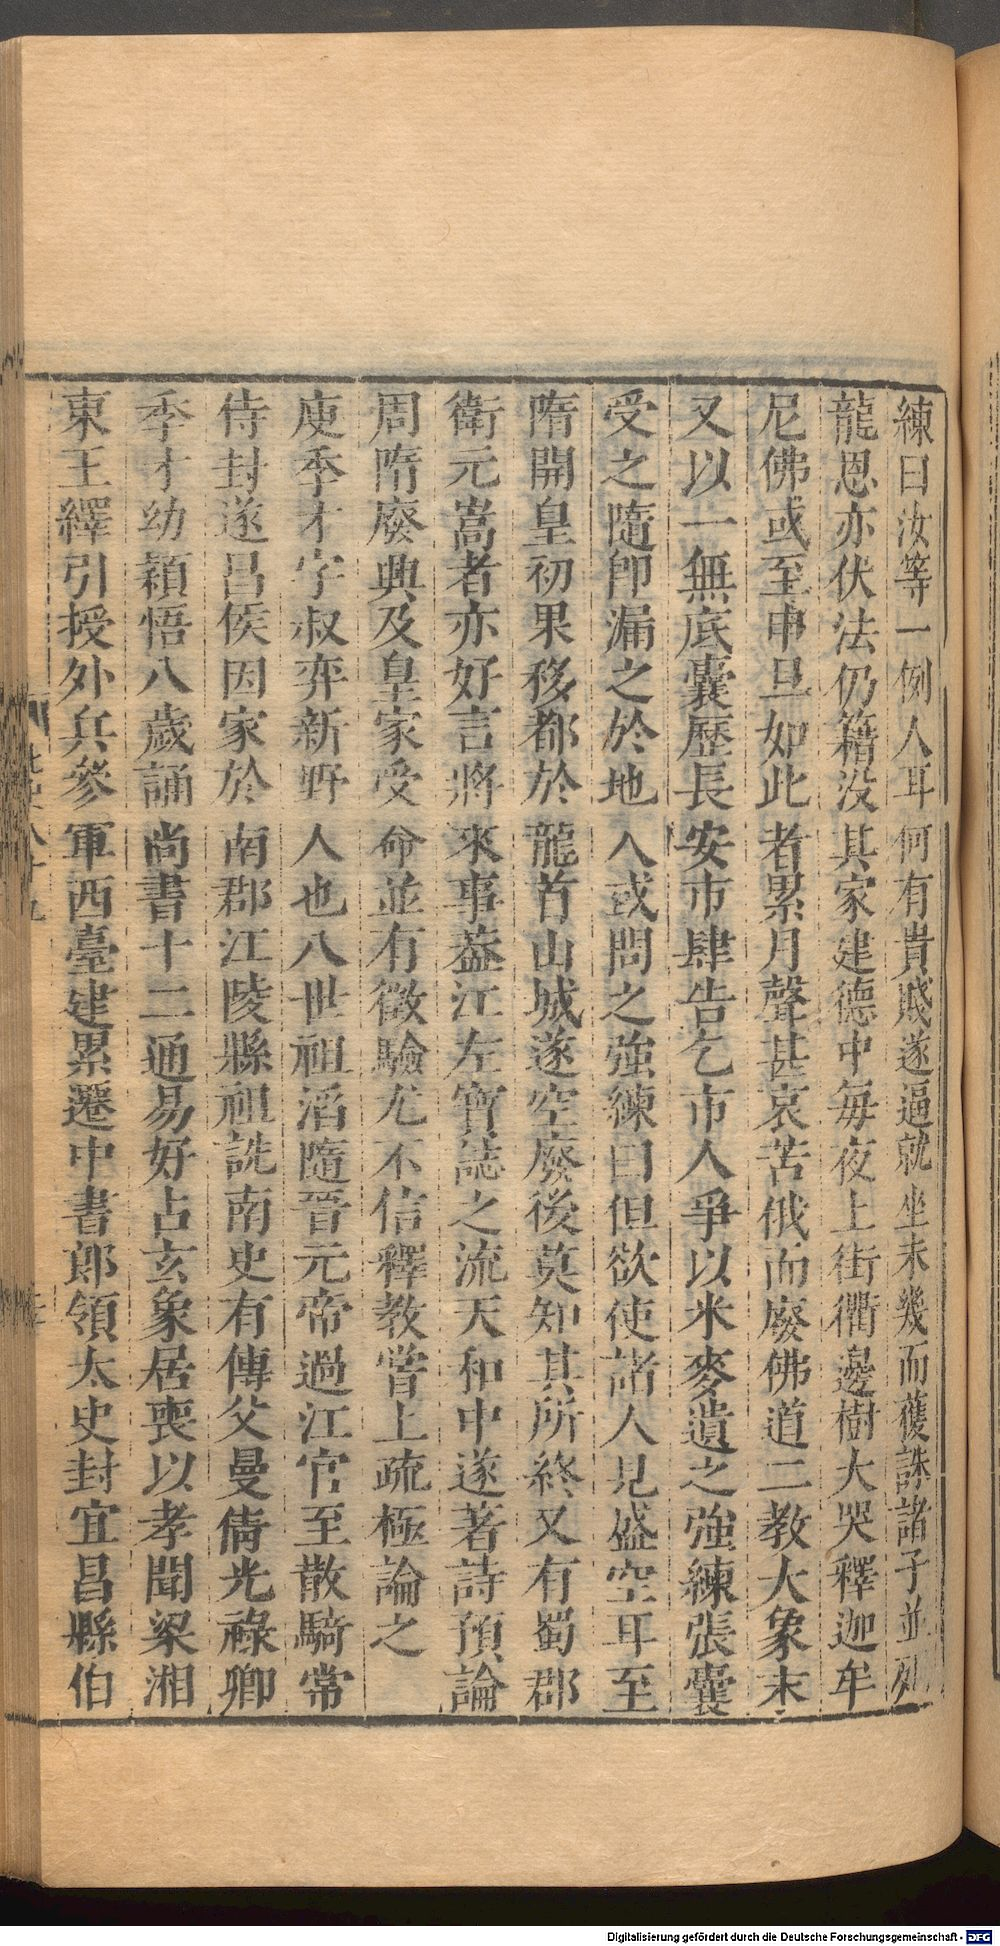 練曰汝等一例人耳何有貴賤遂逼就坐未幾而護誅諸子並死
龍恩亦伏法仍籍没其家建德中毎夜上街衢邊樹大哭釋迦牟
尼佛或至申旦如此者累月聲甚哀苦俄而廢佛道二教大象末
又以一無底囊歷長安市肆告乞市人爭以米麥遺之強練張囊
受之隨即漏之於地人或問之強練曰但欲使諸人見盛空耳至
隋開皇初果移都於龍首山城遂空廢後莫知其所終又有蜀郡
衛元嵩者亦好言將來事蓋江左寶誌之流天和中遂著詩預論
周隋廢興及皇家受命並有徵驗尤不信釋教嘗上疏極論之
庾季才字叔弈新野人也八世祖滔隨晉元帝過江官至散騎常
侍封遂昌侯因家於南郡江陵縣祖詵南史有傳父曼倩光祿卿
季才幼穎悟八歲誦尚書十二通易好占玄象居喪以孝聞梁湘
東王繹引授外兵參軍西臺建累遷中書郎領太史封宜昌縣伯
八十九
Digitalisierung gefördert durch die Deutsche Forschungsgemeinschaft - DFG